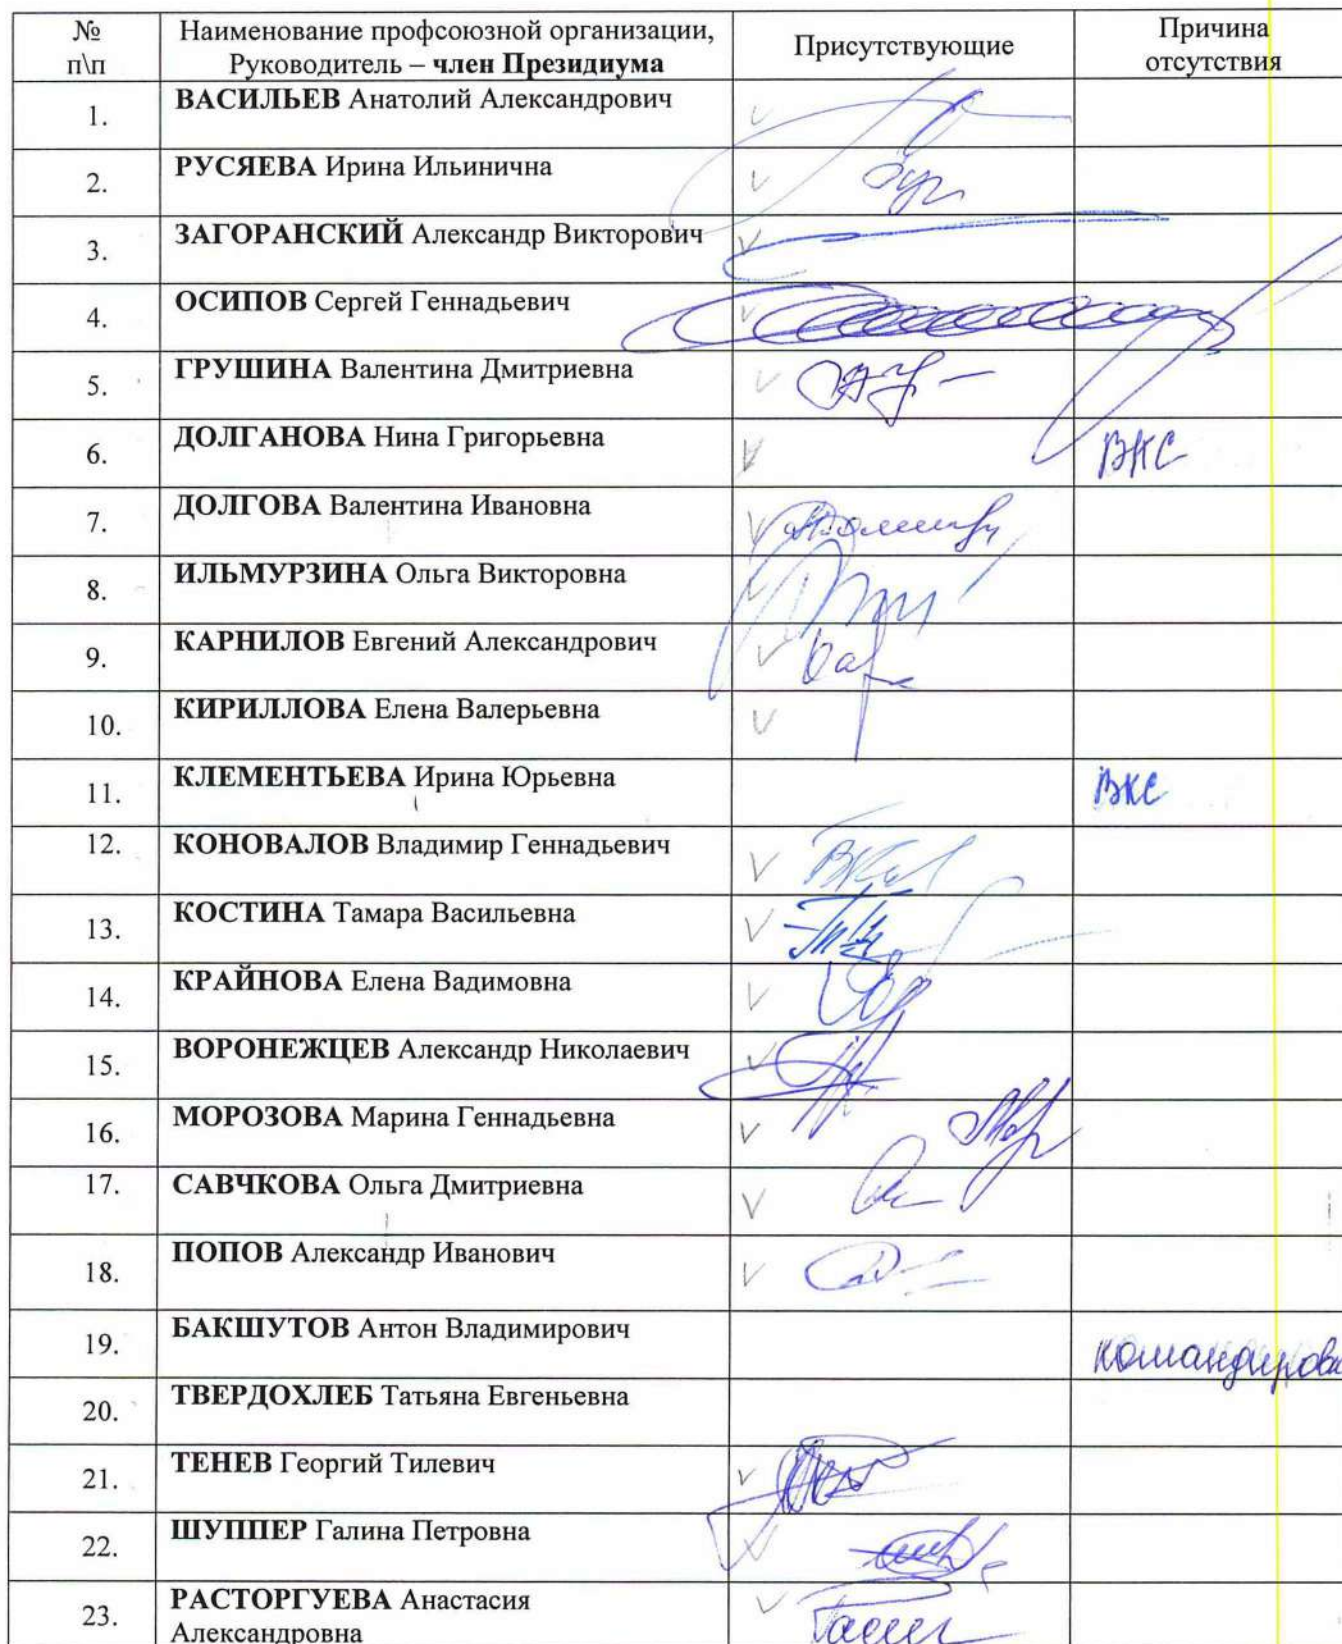 № Наименование профсоюзной организации, Присутствующие Причина
п\п Руководитель – член Президиума отсутствия
1. ВАСИЛЬЕВ Анатолий Александрович
2. РУСЯЕВА Ирина Ильинична
3. ЗАГОРАНСКИЙ Александр Викторович
4. ОСИПОВ Сергей Геннадьевич
5. ГРУШИНА Валентина Дмитриевна
6. ДОЛГАНОВА Нина Григорьевна ВКС
7. ДОЛГОВА Валентина Ивановна
8. ИЛЬМУРЗИНА Ольга Викторовна
9. КАРНИЛОВ Евгений Александрович
10. КИРИЛЛОВА Елена Валерьевна
11. КЛЕМЕНТЬЕВА Ирина Юрьевна ВКС
12. КОНОВАЛОВ Владимир Геннадьевич
13. КОСТИНА Тамара Васильевна
14. КРАЙНОВА Елена Вадимовна
15. ВОРОНЕЖЦЕВ Александр Николаевич
16. МОРОЗОВА Марина Геннадьевна
17. САВЧКОВА Ольга Дмитриевна
18. ПОПОВ Александр Иванович
19. БАКШУТОВ Антон Владимирович командировк
20. ТВЕРДОХЛЕБ Татьяна Евгеньевна
21. ТЕНЕВ Георгий Тилевич
22. ШУППЕР Галина Петровна
23. РАСТОРГУЕВА Анастасия
Александровна